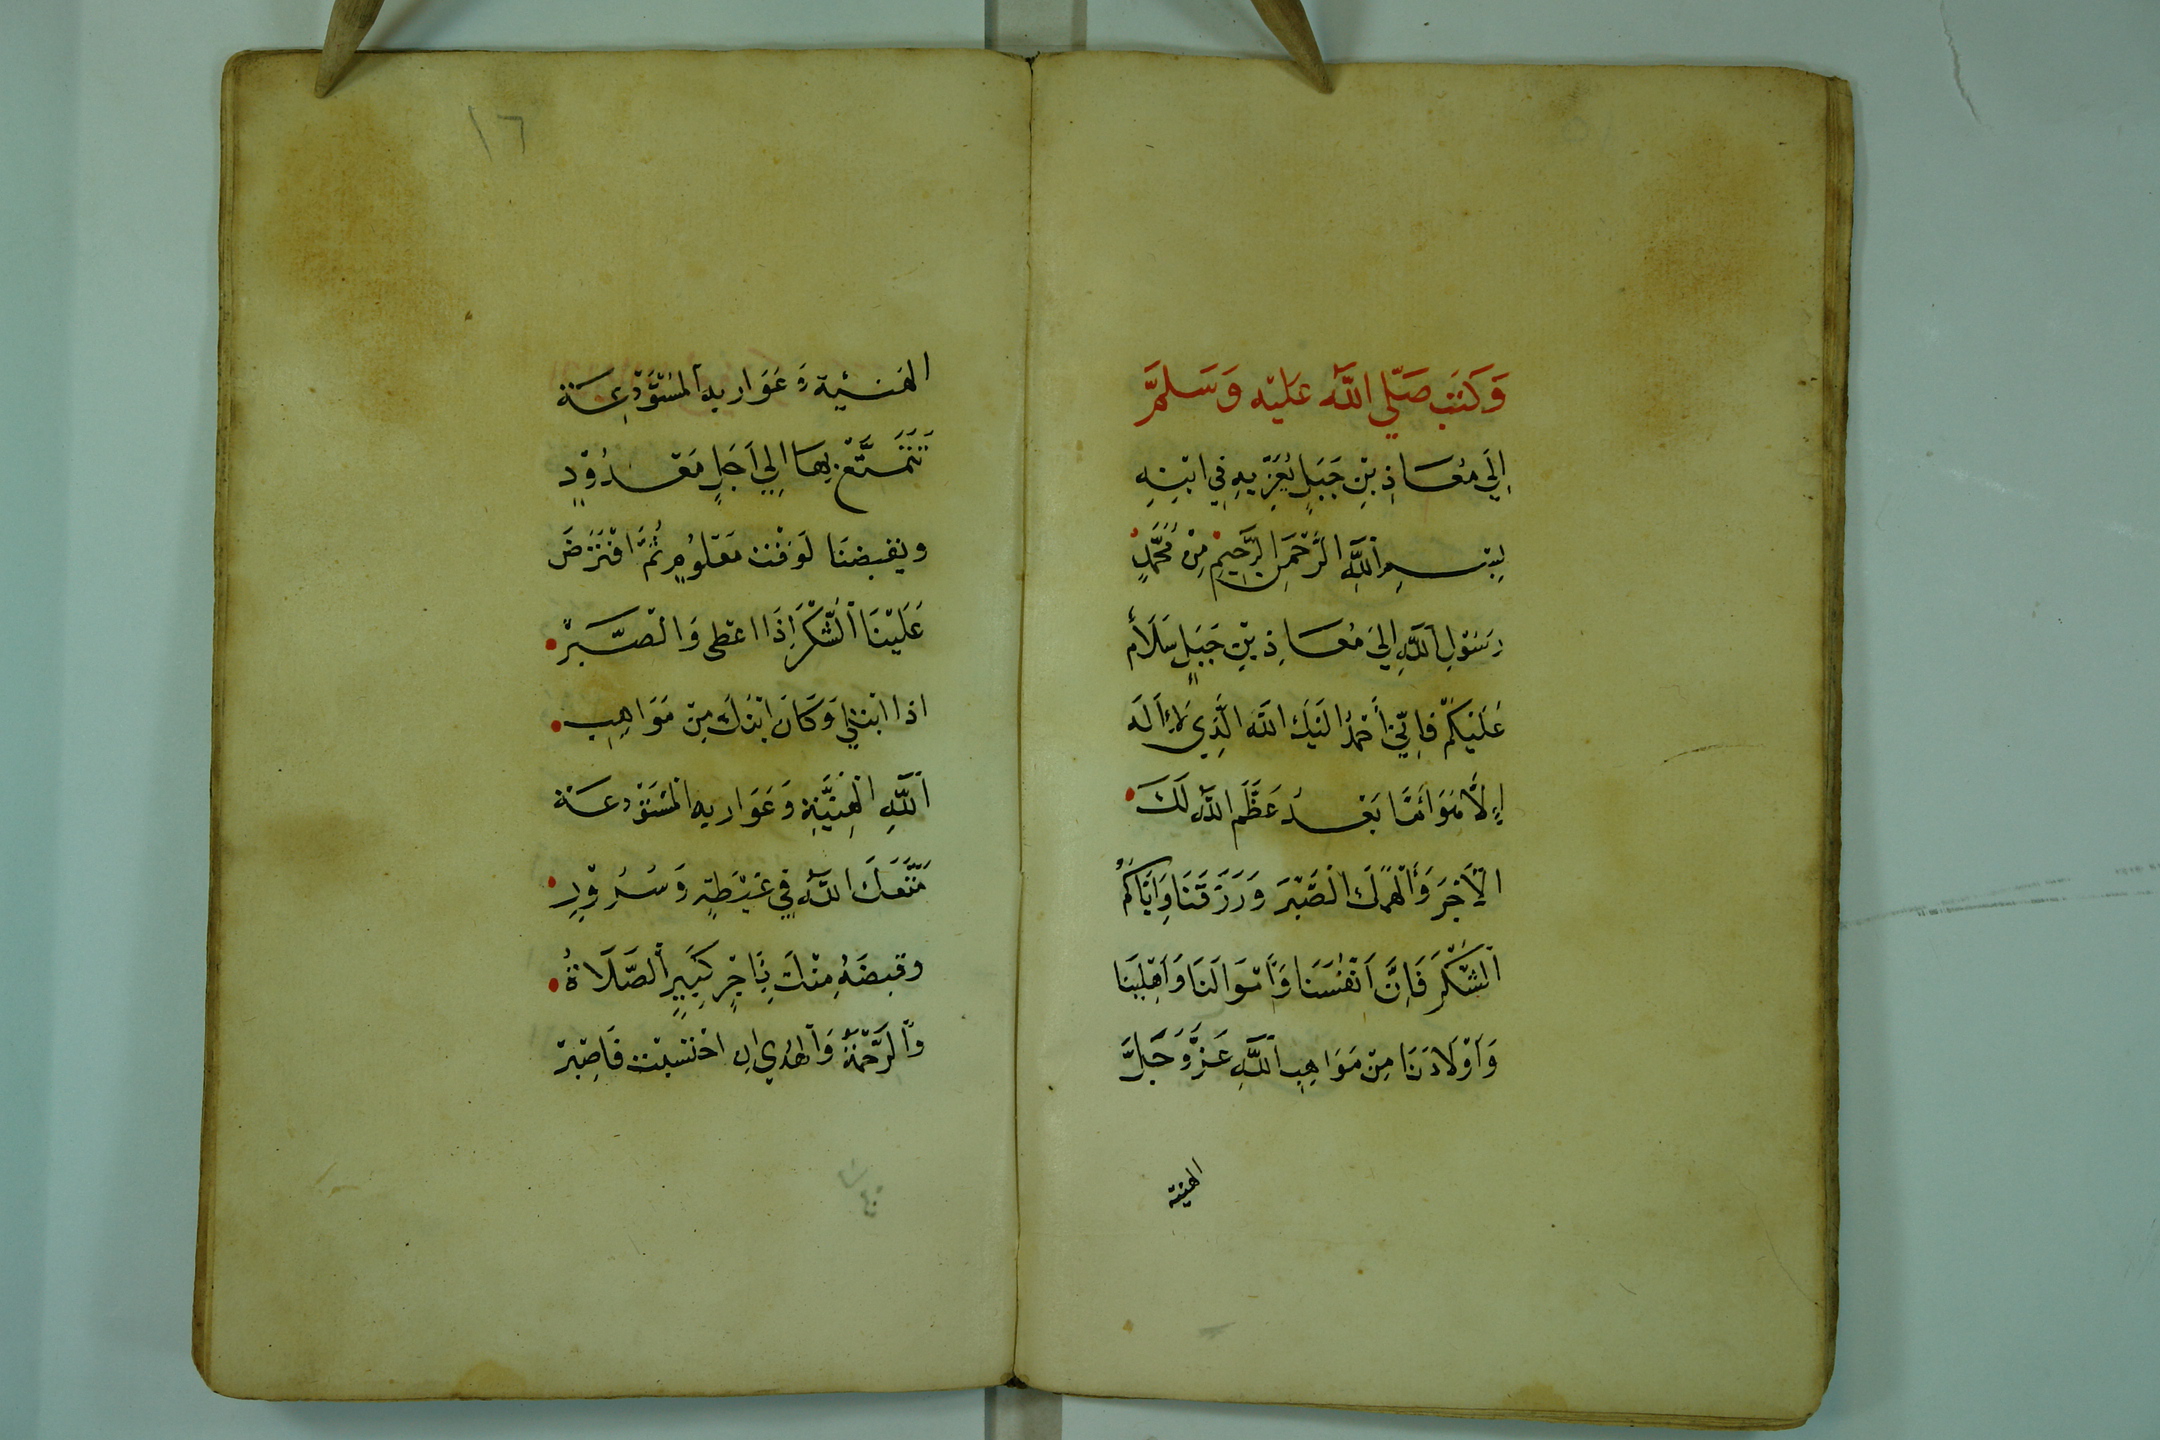 وَكَتَبَ صَلَّي اللَّه عَليْه وَسَلمَّ
اِلَي مُعَاذِ بْنِ جَبَلٍ يُعَزّيهِ فِي ابْنِهِ
بِسْمِ اللَّهِ الرَّحْمَنِ الرَّحِيمِ مِنْ مُحَمَّدٍ
رَسُوْلِ اللَّهِ اِليَ مُعَاذِ بْنِ جَبَلٍ سَلَامٌ
عَلَيْكُمْ فَاِنِّيْ أَحْمَدُ الَيْكَ اللَّه الَّذِي لَا اِلَه
اِلَّا هُوَ اَمَّا بَعْدُ عَظَّمَ اللَّه لَكَ
الْاَجْرَ وَأَلْهَمَكَ الْصَّبْرَ وَرَزَقَنَا وَاِيَّاكُمُ
الْشُكْرَ فَاِنَّ اَنْفُسَنَا وَاَمْوَالَنَا وَاَهْلِيْنَا
وَاَوْلَادَنَا مِنْ مَوَاهِبِ اللَّهِ عَزَّ وَجَلَّ
الهنية
١٦
الهَنيئَة وَعَوَاريه المُسْتَوْدَعَة
نَتَمَتَّعْ بِهَا اِلِي اَجَلٍ مَعْدُوْدٍ
ويقبضنَا لوَقْت مَعْلُوْمٍ ثُمَّ افْتَرَضَ
عَلَيْنَا الْشُّكْرَ اِذَا اعْطى وَالْصَّبْرْ
اذا ابْتلي وَكَانَ ابْنُكَ مِنْ مَوَاهِبِ
اللَّهِ الْهَنِيَّةِ وَعَوَاريه المْسْتَوْدعَة
مَتَّعَكَ اللَّه فِي غِبْطَةٍ وَسُرُوْرٍ
وقبضَهُ مِنْكَ بِأَجْرٍ كَبِيرٍ الصَّلَاةُ
وَالرَّحْمَةُ وَالهُدي اِن احْتَسَبْت فَاصْبِرْ